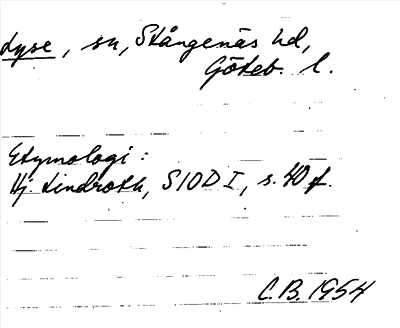 Lyse, sn, Stångenäs hd,
Göteb. l.
Etymologi:
Hj. Lindroth, SIOD I, s. 40 f.
C.B. 1954